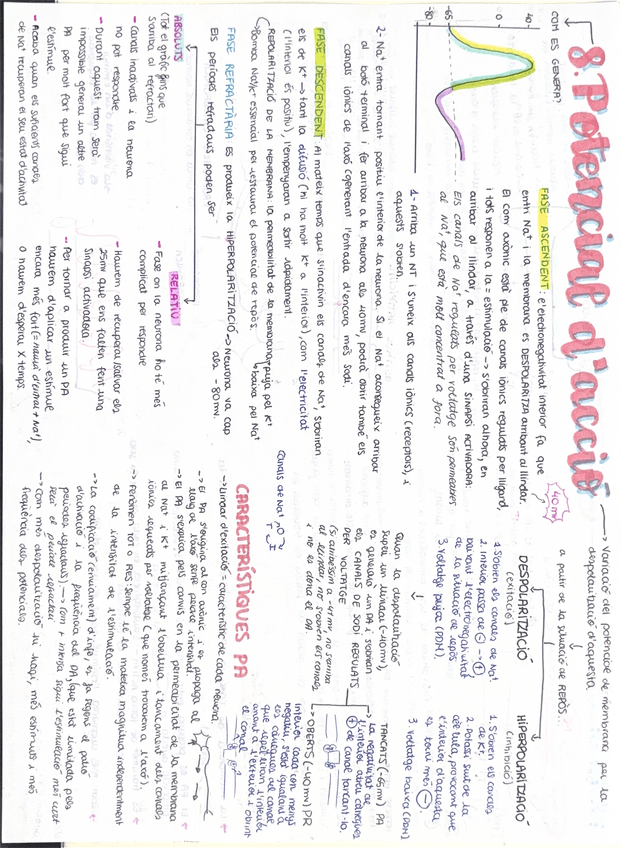 8. Potencial d'acció
→ Variació del potencial de membrana per la
despolarització d'aquesta
a partir de la situació de REPÒS...
COM ES GENERA?
40
-65
-80
FASE ASCENDENT: e⁻electronegativitat interior fa que
entri Na⁺ i la membrana es DESPOLARITZA arribant al llindar.
40 mv
El con axònic està ple de canals iònics regulats per lligand,
i tots responen a la = estimulació → s'obriran alhora, en
arribar al llindar, a través d'una SINAPSI ACTIVADORA:
Els canals de Na⁺ regulats per voltatge són permeables
al Na⁺, que està molt concentrat a fora.
1- Arriba un NT i s'uneix als canals iònics (receptors), i
aquests s'obren.
2- Na⁺ entra tornant positiu l'interior de la neurona. Si el Na⁺ aconsegueix arribar
al botó terminal i fer arribar a la neurona als 40mv, podrà obrir també els
canals iònics de Na⁺ generant l'entrada d'encara més Sodi.
FASE DESCENDENT Al mateix temps que s'inactiven els canals de Na⁺, s'obriran
els de K⁺ → tant la difusió (hi ha molt K⁺ a l'interior), com l'electricitat
(l'interior és positiu), l'empenyaran a sortir ràpidament.
↳ REPOLARITZACIÓ DE LA MEMBRANA: la permeabilitat de la membrana puja pel K⁺
baixa pel Na⁺
↳ Bomba Na⁺/K⁺ essencial per restaurar el potencial de repòs.
FASE REFRACTÀRIA Es produeix la HIPERPOLARITZACIÓ → Neurona va cap
als -80mv.
Els períodes refractaris poden ser
ABSOLUTS
(Tot el gràfic fins que
s'arriba al refractari)
- Canals inactivats i la neurona
no pot respondre
- Durant aquest tram serà
impossible generar un altre
PA per molt fort que sigui
l'estímul.
- Acaba quan els suficients canals
de Na⁺ recuperen el seu estat d'activitat
RELATIU
- Fase on la neurona ho té més
complicat per respondre
- Haurem de recuperar/salvar els
25mv que ens falten fent una
sinapsi activadora.
- Per tornar a produir un PA
haurem d'aplicar un estímul
encara més fort (= haurà d'entrar + Na⁺)
o haurem d'esperar X temps.
DESPOLARITZACIÓ
(excitació)
1. S'obren els canals de Na⁺
2. Interior passa de ⊖ → ⊕
baixant l'electronegativitat
de la situació de repòs
3. Voltatge puja (PDM).
HIPERPOLARITZACIÓ
(inhibició)
1. S'obren els canals
de K⁺.
2. Potassi surt de la
cèl·lula, provocant que
l'interior d'aquesta
es torni més ⊖.
3. Voltatge baixa (PDM)
Quan la despolarització
supera un llindar (-40mv),
es genera un PA i s'obren
els CANALS DE SODI REGULATS
PER VOLTATGE
(Si arribéssim a -41 mv, no s'arriba
al llindar, no s'obren els canals
i no es dona el PA.
Canals de Na⁺
TANCATS (-65mv) PA
↳ La negativitat de
l'interior atrau càrregues
⊕ de canal tancant-lo.
→ OBERTS (-40mv) PR
Interior cada cop menys
negatiu, s'està igualant a
les càrregues del canal
que repel·liran l'interior
anant a l'exterior i obrint
el canal
CARACTERÍSTIQUES PA
→ Llindar d'excitació = característic de cada neurona.
→ El PA s'origina al con axònic i es propaga al
llarg de l'axó sense perdre intensitat.
→ El PA s'explica pels canvis en la permeabilitat de la membrana
al Na⁺ i K⁺ mitjançant l'obertura i tancament dels canals
iònics regulats per voltatge (que només trobarem a l'axó).
→ Fenomen TOT o RES: Sempre té la mateixa magnitud independentment
de la intensitat de l'estimulació.
→ La codificació (enviament) d'info, es fa segons el patró
d'activació i la freqüència del PA (que està limitada pels
períodes refractaris) → Com + intensa sigui l'estimulació més curt
serà el període refractari
→ Com més despolarització hi hagi, més estímuls i més
freqüència dels potencials.